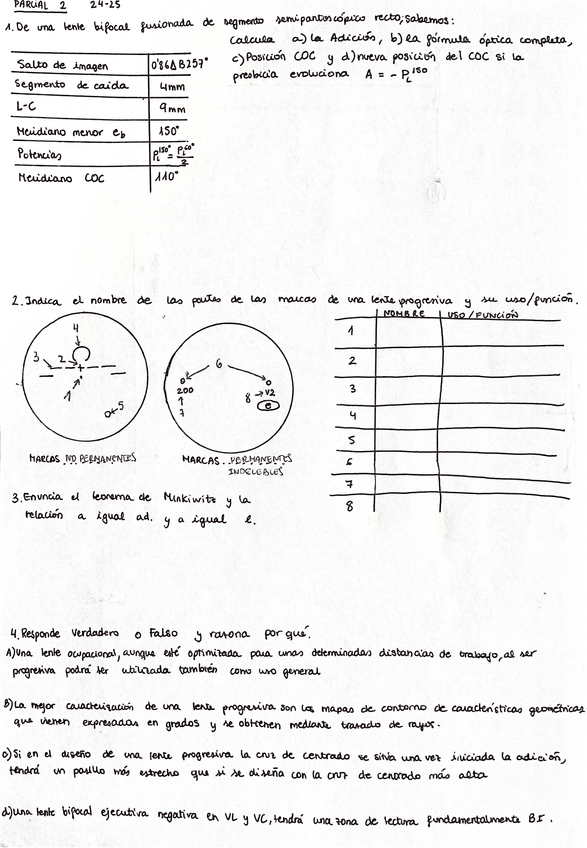 PARCIAL 2 24-25
1. De una lente bifocal fusionada de segmento semipantoscópico recto, sabemos:
Calcula a) la Adición, b) la fórmula óptica completa,
c) Posición COC y d) nueva posición del COC si la
presbicia evoluciona A = - PL150
Salto de imagen 0'86Δ B257°
Segmento de caída 4mm
L-C 9mm
Meridiano menor eb 150°
Potencias PL150° = PL60°/2
Meridiano COC 110°
2. Indica el nombre de las partes de las marcas de una lente progresiva y su uso/función.
NOMBRE USO / FUNCIÓN
1
2
3
4
5
6
7
8
4
3 2
1
5
MARCAS NO PERMANENTES
6
200
7
8 → V2
e
MARCAS PERMANENTES
INDELEBLES
3. Enuncia el teorema de Minkiwitz y la
relación a igual ad. y a igual e.
4. Responde Verdadero o Falso y razona por qué.
A) Una lente ocupacional, aunque esté optimizada para unas determinadas distancias de trabajo, al ser
progresiva podrá ser utilizada también como uso general
B) La mejor caracterización de una lente progresiva son los mapas de contorno de características geométricas
que vienen expresadas en grados y se obtienen mediante trazado de rayos.
c) Si en el diseño de una lente progresiva la cruz de centrado se sitúa una vez iniciada la adición,
tendrá un pasillo más estrecho que si se diseña con la cruz de centrado más alta
d) Una lente bifocal ejecutiva negativa en VL y VC, tendrá una zona de lectura fundamentalmente BI.